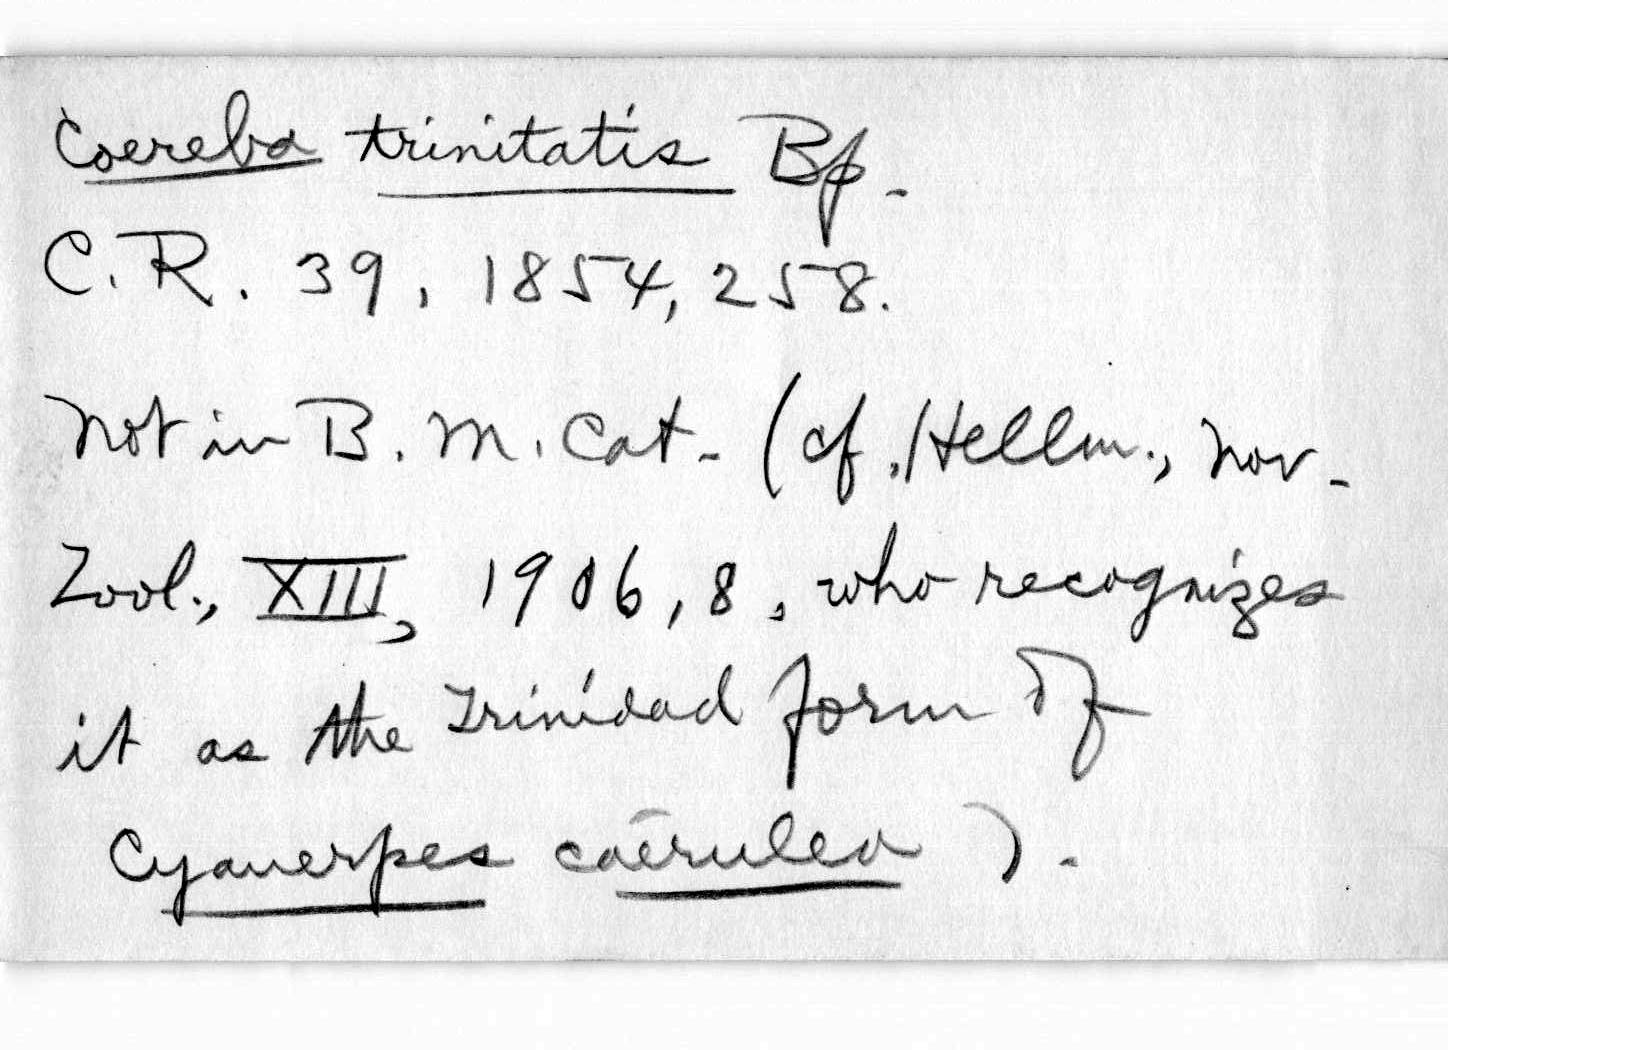 Coereba trinitatis Bp.
C.R. 39, 1854, 258.
Not in B.M. Cat. (cf. Hellm., Nov.
Zool., XIII, 1906, 8, who recognizes
it as the Trinidad form of
Cyanerpes caerulea).